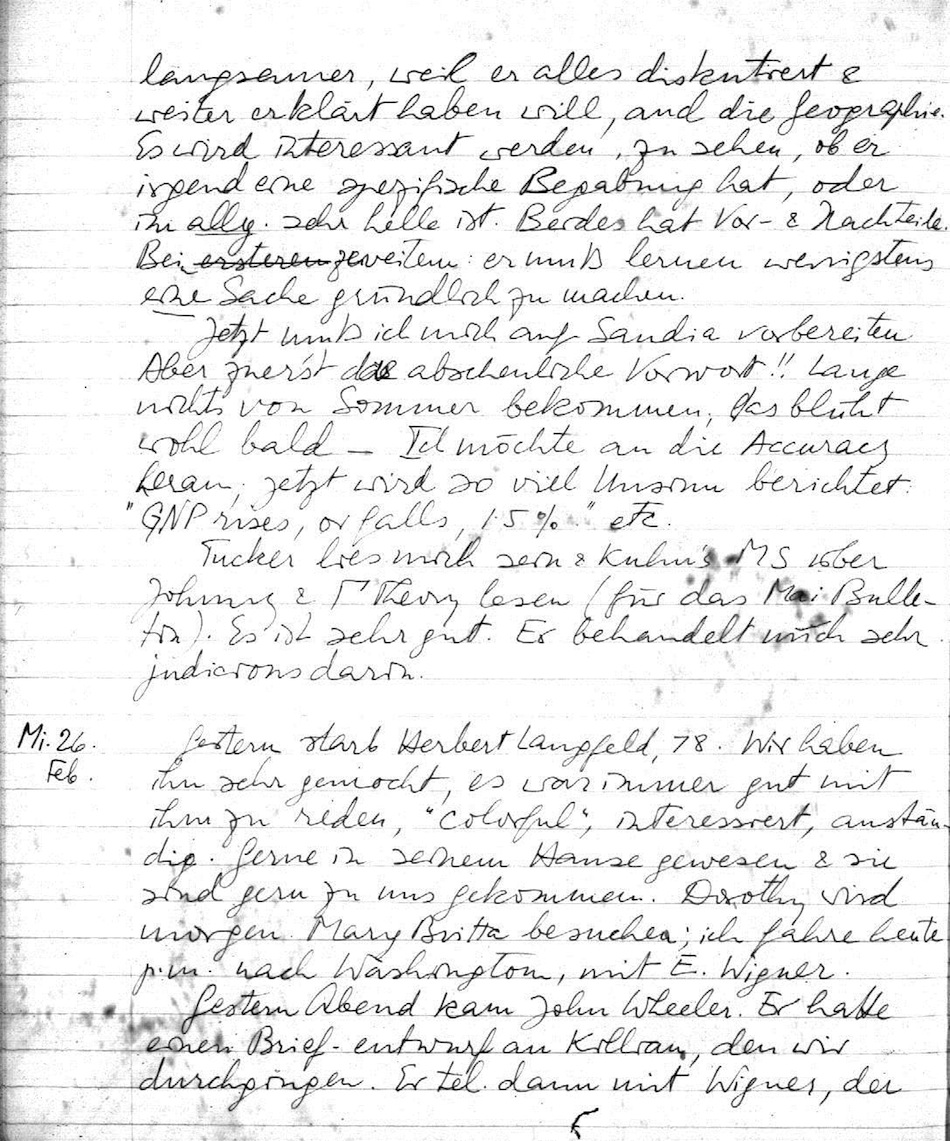 langsamer, weil er alles diskutiert &
weiter erklärt haben will, and die Geographie.
Es wird interessant werden, zu sehen, ob er
irgend eine spezifische Begabung hat, oder
im allg. sehr helle ist. Beides hat Vor- & Nachteile.
Bei ersteren zweitem: er muß lernen wenigstens
eine Sache gründlich zu machen.
Jetzt muß ich mich auf Sandia vorbereiten
Aber zuerst das abscheuliche Vorwort!! Lange
nichts von Sommer bekommen, das blüht
wohl bald – Ich möchte an die Accuracy
heran; jetzt wird so viel Unsinn berichtet:
"GNP rises, or falls, 1.5%" etc.
Tucker lies mich sein & Kuhn's MS über
Johnny & Γ Theory lesen (für das Mai Bulle-
tin). Es ist sehr gut. Er behandelt mich sehr
judicious darin.
Mi. 26.
Feb.
Gestern starb Herbert Langfeld, 78. Wir haben
ihn sehr gemocht, es war immer gut mit
ihm zu reden, "colorful", interessiert, anstän-
dig. Gerne in seinem Hause gewesen & sie
sind gern zu uns gekommen. Dorothy wird
morgen Mary Britta besuchen; ich fahre heute
p.m. nach Washington, mit E. Wigner.
Gestern Abend kam John Wheeler. Er hatte
einen Brief-entwurf an Killian, den wir
durchgingen. Er tel. dann mit Wigner, der